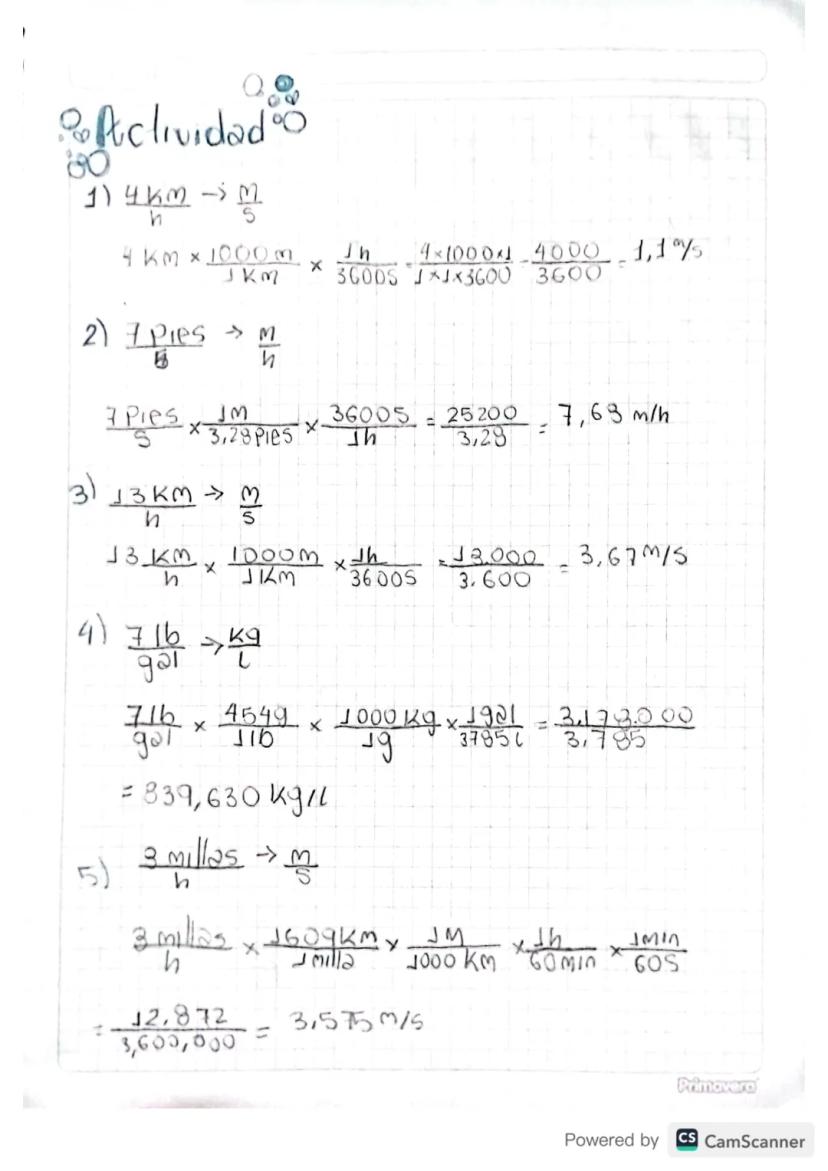 Actividad
1) 4 km/h → m/s
4 km × 1000 m/1 km × 1h/3600s = 4×1000×1/1×1×3600 = 4000/3600 = 1,1 m/s
2) 7 Pies/s → m/h
7 Pies/s × 1m/3,28 pies × 3600s/1h = 25200/3,28 = 7,68 m/h
3) 13 km/h → m/s
13 km/h × 1000m/1km × 1h/3600s = 13.000/3.600 = 3,67 m/s
4) 7 lb/gal → kg/L
7 lb/gal × 454g/1lb × 1000 kg/1g × 1gal/3785 L = 3.178.000/3.785
= 839,630 kg/L
5) 3 millas/h → m/s
3 millas/h × 1609 km/1 milla × 1M/1000 km × 1h/60 min × 1min/60s
= 12.872/3,600,000 = 3,575 m/s
Primavera
Powered by CS CamScanner